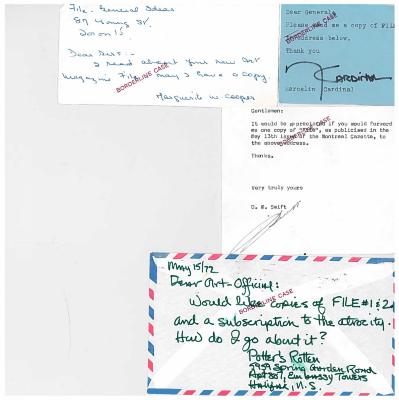 File - General Ideas
87 Yonge St.
Toronto
Dear Sirs: -
I read about your new art
Magazine File may I have a copy.
Marguerite W. Cooper
BORDERLINE CASE
Dear General,
Please send me a copy of FILE
address below,
Thank you
CARDINAL
Marcelin Cardinal
BORDERLINE CASE
Gentlemen:
It would be appreciated if you would forward
me one copy of "FILE", as publicised in the
May 13th issue of the Montreal Gazette, to
the above address.
Thanks.
Very truly yours
D. W. Swift
BORDERLINE CASE
May 15/72
Dear Art-Official:
Would like copies of FILE #1 & 2
and a subscription to the atrocity.
How do I go about it?
Potter's Rotten
5959 Spring Garden Road
Apt 807, Embassy Towers
Halifax, N.S.
BORDERLINE CASE